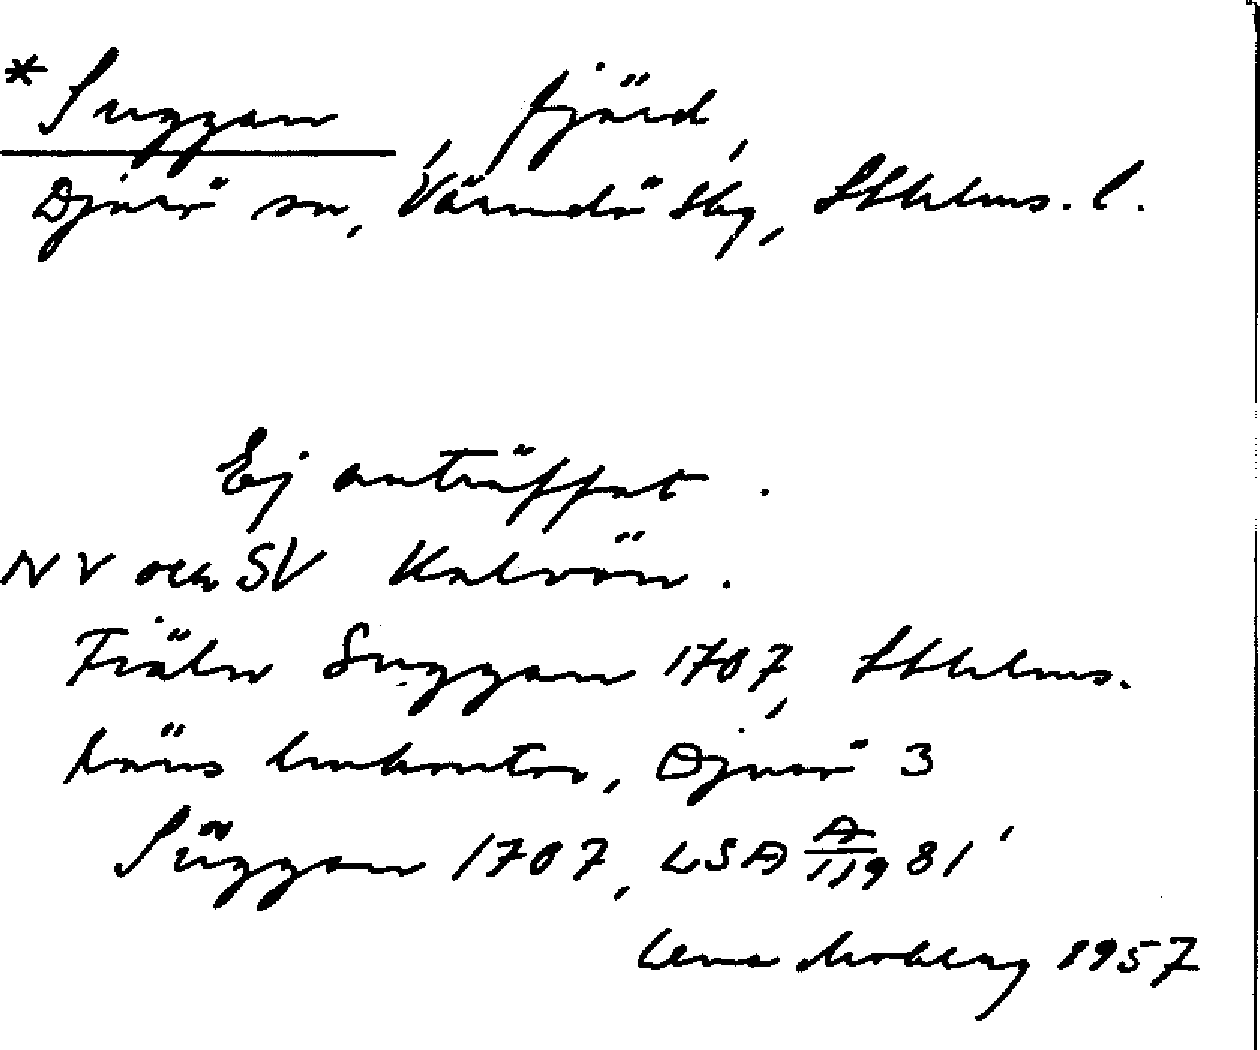 *Suggan, fjärd,
Djurö sn, Värmdö sbg, Sthlms. l.
Ej anträffat.
NV och SV Kalvön.
Fiäln Suggan 1707, Sthlms.
läns lmkontor, Djurö 3
Süggan 1707, LSA A/119 81'
Lena Moberg 1957